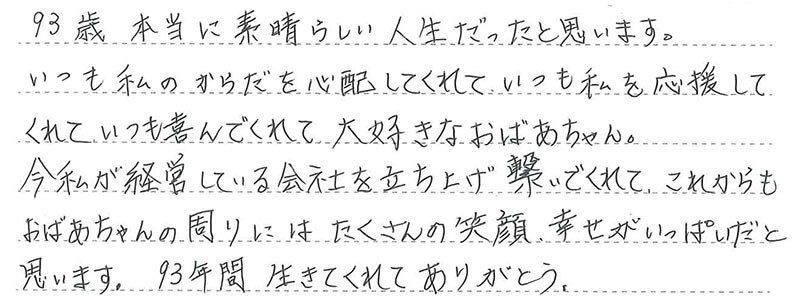 93歳 本当に素晴らしい人生だったと思います。
いつも私のからだを心配してくれて、いつも私を応援して
くれて、いつも喜んでくれて 大好きなおばあちゃん。
今私が経営している会社を立ち上げ 繋いでくれて、これからも
おばあちゃんの周りには たくさんの笑顔、幸せがいっぱいだと
思います。 93年間 生きてくれてありがとう。